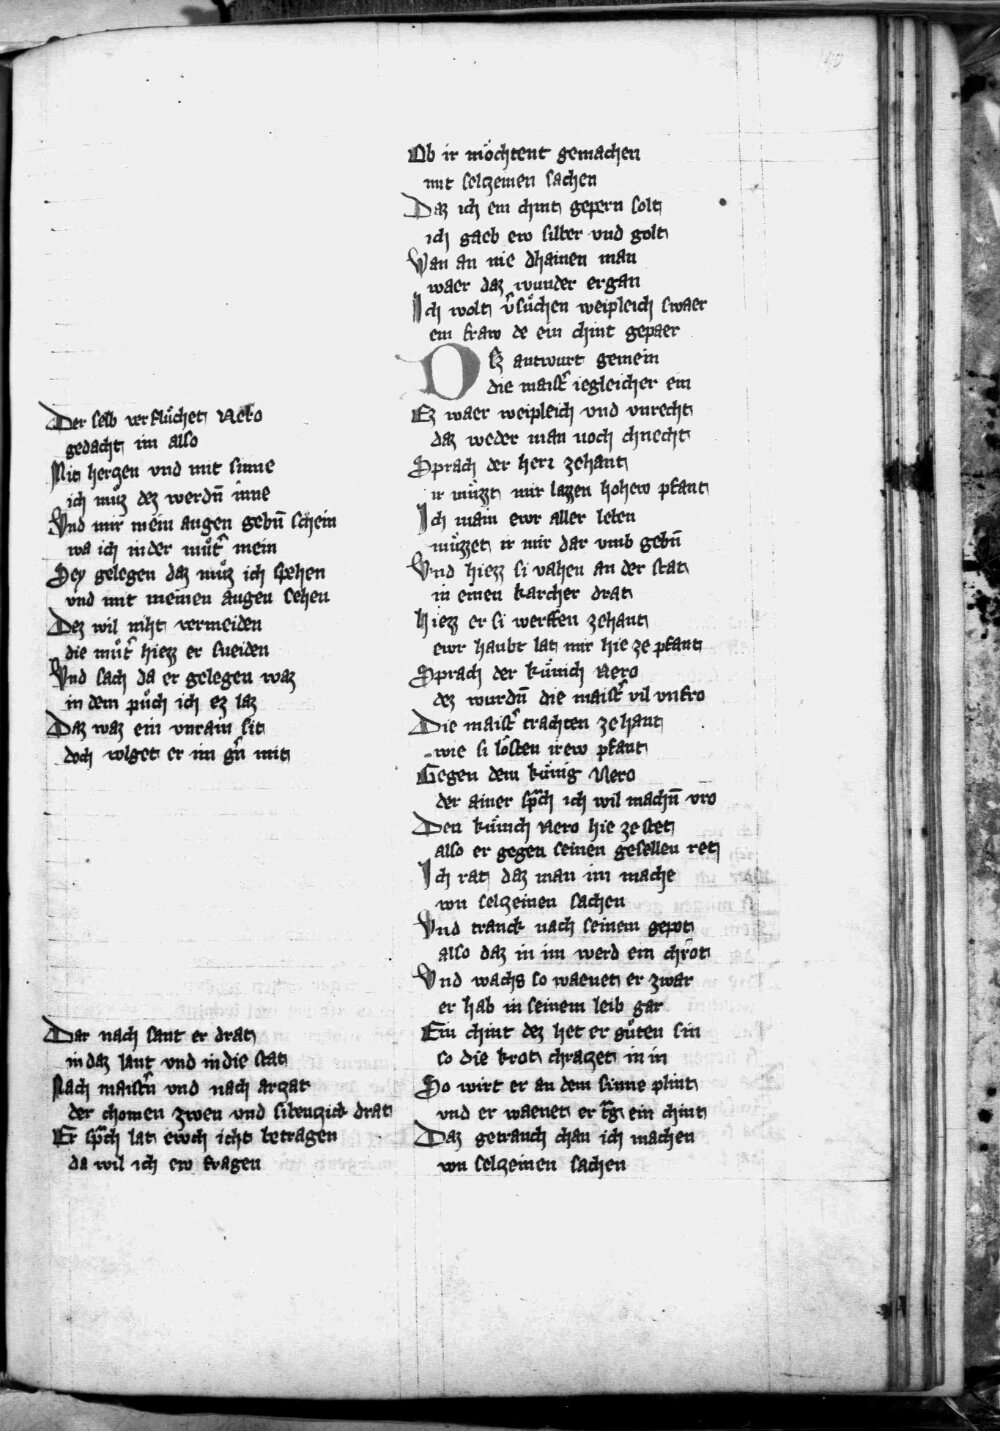 Der selb verflůchet Nero
gedacht im also
Mit herczen vnd mit sinne
ich můz dez werdn̄ inne
Vnd mir mein augen gebn̄ schein
wa ich in der můt͛ mein
Sey gelegen daz můz ich spehen
vnd mit meinen augen sehen
Dez wil niht vermeiden
die můt͛ hiezz er sneiden
Vnd sach da er gelegen waz
in dem půch ich ez laz
Daz waz ein vnrain sit
doch volget er im gn̄ mit
Dar nach sant er drat
in daz lant vnd in die stat
Nach maistn̄ vnd nach arczat
der chomen zwen vnd sibenczick drat
Er sp̄ch lat ewch icht betragen
da wil ich ew fragen
Ob ir möchtent gemachen
mit selczeinen sachen
Daz ich ein chint gepern solt
ich gaeb ew silber vnd golt
Wan an nie dhainen man
waer daz wunder ergan
Ich wolt v͛sůchen weipleich swaer
ein fraw de ein chint gepaer
Dez antwurt gemein
die maist͛ iegleicher ein
Ez waer weipleich vnd vnrecht
daz weder man noch chnecht
Sprach der herr zehant
ir můzzt mir lazzen hohew pfant
Ich main ewr aller leben
můzzet ir mir dar vmb gebn̄
Vnd hiezz si vahen an der stat
in einen karcher drat
hiezz er si werffen zehant
ewr haubt lat mir hie ze pfant
Sprach der kůnich Nero
dez wurdn̄ die maist͛ vil vnfro
Die maist͛ trachten zehant
wie si lösten irew pfant
Gegen dem kůnig Nero
der ainer sp̄ch ich wil machn̄ vro
Den kůnich Nero hie ze stet
also er gegen seinen gesellen ret
Ich rat daz man im mache
von selczeinen sachen
Vnd tranck nach seinem gepot
also daz in im werd ein chrot
Vnd wachs so waenet er zwar
er hab in seinem leib gar
Ein chint dez het er gůten sin
so die krot chraczet in in
So wirt er an dem sinne plint
vnd er waenet er tḡ ein chint
Daz getranch chan ich machen
von selczeinen sachen